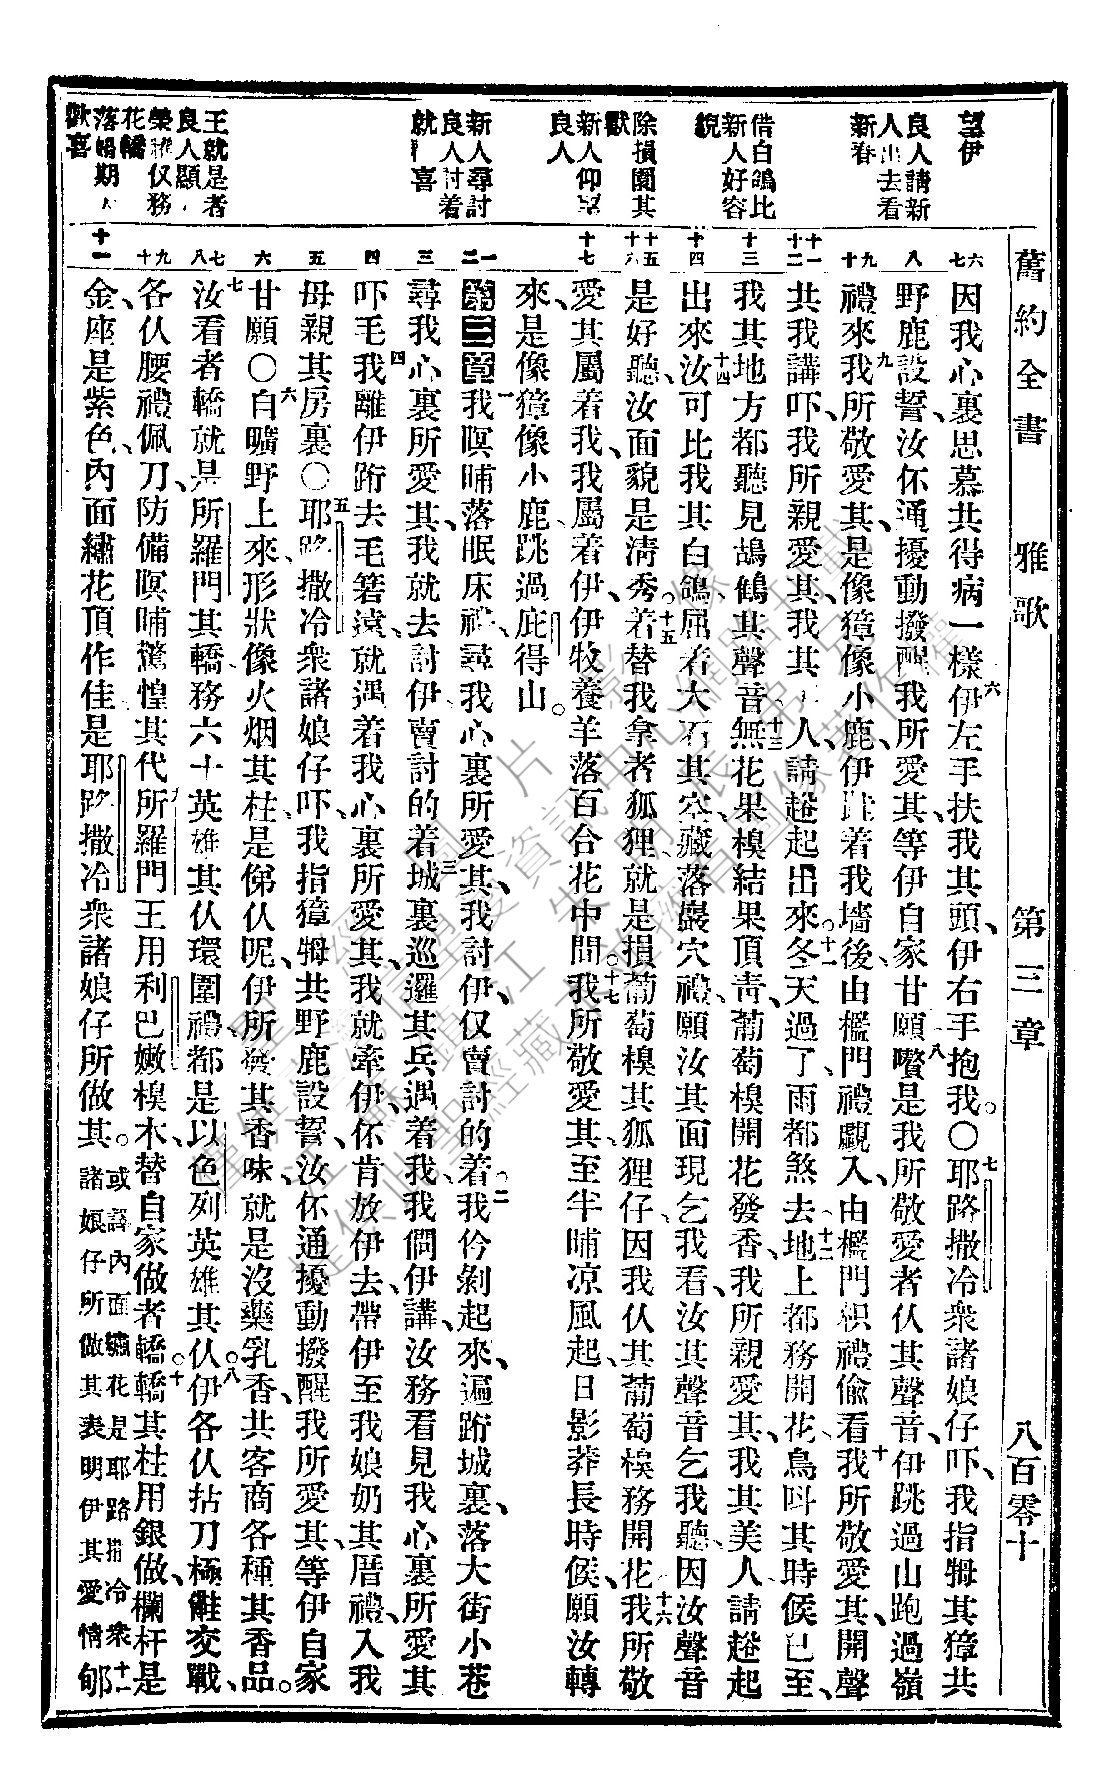 舊約全書 雅歌 第三章 八百零十
望伊
良人請新
人出去看
新春
借白鴿比
新人好容
貌
除損園其
獸
新人仰望
良人
新人尋討
良人討着
就 喜
王就是者
良人顯
榮雅仅務
花轎
落婚期
歡喜
六
七
八
九
十
十一
十二
十三
十四
十五
十六
十七
一
二
三
四
五
六
七
八
九
十
十一
因我心裏思慕共得病一樣六伊左手扶我其頭、伊右手抱我。〇七耶路撒冷衆諸娘仔吓、我指㹀其獐共
野鹿設誓、汝伓通擾動撥醒我所愛其、等伊自家甘願。八是我所敬愛者仈其聲音、伊跳過山跑過嶺
禮來九我所敬愛其、是像獐像小鹿、伊 着我墻後、由檻門禮覷入、由檻門枳禮偷看十我所敬愛其、開聲
共我講吓、我所親愛其、我其 人、請趨起出來。十一冬天過了、雨都煞去、十二地上都務開花、鳥呌其時候已至、
我其地方都聽見鴣鶴其聲音。十三無花果模結果頂靑、葡萄模開花發香、我所親愛其、我其美人、請趨起
出來。十四汝可比我其白鴿、屈着大石其空、藏落巖穴禮、願汝其面現乞我看、汝其聲音乞我聽、因汝聲音
是好聽、汝面貌是淸秀。十五着替我拿者狐狸、就是損葡萄模其狐狸仔、因我仈其葡萄模務開花。十六我所敬
愛其屬着我、我屬着伊、伊牧養羊落百合花中間。十七我所敬愛其、至半晡凉風起、日影莽長時候、願汝轉
來、是像獐像小鹿、跳過庇得山。
第三章一我暝晡落眠床禮、尋我心裏所愛其、我討伊、仅賣討的着。二我仱剝起來、遍跡城裏、落大街小巷
尋我心裏所愛其、我就去討伊、賣討的着。三城裏巡邏其兵遇着我、我問伊講、汝務看見我心裏所愛其
吓毛。四我離伊跡去毛箬遠、就遇着我心裏所愛其、我就牽伊、伓肯放伊去、帶伊至我娘奶其厝禮、入我
母親其房裏〇五耶路撒冷衆諸娘仔吓、我指獐㹀共野鹿設誓、汝伓通擾動撥醒我所愛其、等伊自家
甘願〇六自曠野上來、形狀像火烟其柱、是俤仈呢、伊所發其香味、就是沒藥乳香、共客商各種其香品。
七汝看者轎就是所羅門其轎、務六十英雄其仈環圍禮、都是以色列英雄其仈。八伊各仈拈刀極 交戰、
各仈腰禮佩刀、防備暝晡驚惶其代。九所羅門王用利巴嫩模木、替自家做者轎。十轎其柱用銀做、欄杆是
金、座是紫色、內面繡花頂作佳、是耶路撒冷衆諸娘仔所做其。或譯內面繡花是耶路撒冷衆諸娘仔所做其表明伊其愛情十一郇